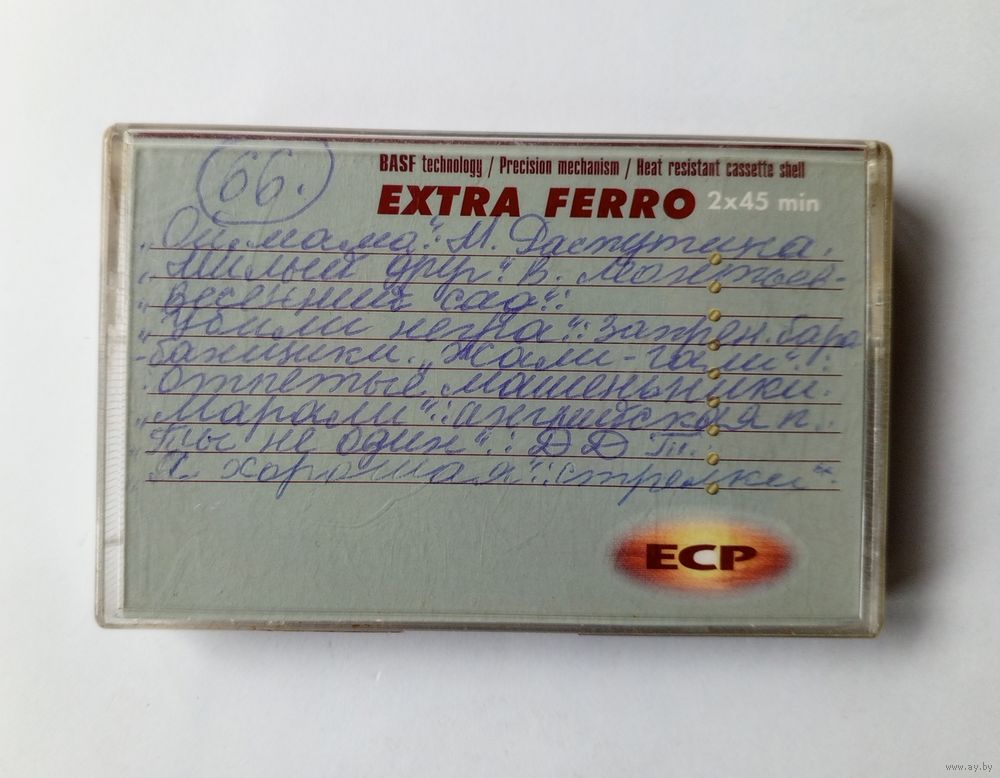 66.
BASF technology / Precision mechanism / Heat resistant cassette shell
EXTRA FERRO 2x45 min
„Ой мама": М. Распутина.
„Милый друг": В. Леонтьев-
„Весенний сад":
„Убили негра": Запрен. бара
-банщики. „Хали-гали":
отпетые мошенники.
„Марали": английская п.
„Ты не один": ДДТ.
„Я хорошая": „стрелки".
ECP
www.ay.by